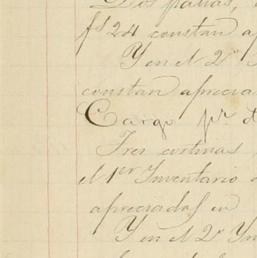 Dos palias,
fs 24 constan a
Y en el 2º
constan aprecia
Cargo pr.
Tres cortinas
el 1er Inventario
apreciadas en
Y en el 2º Yn